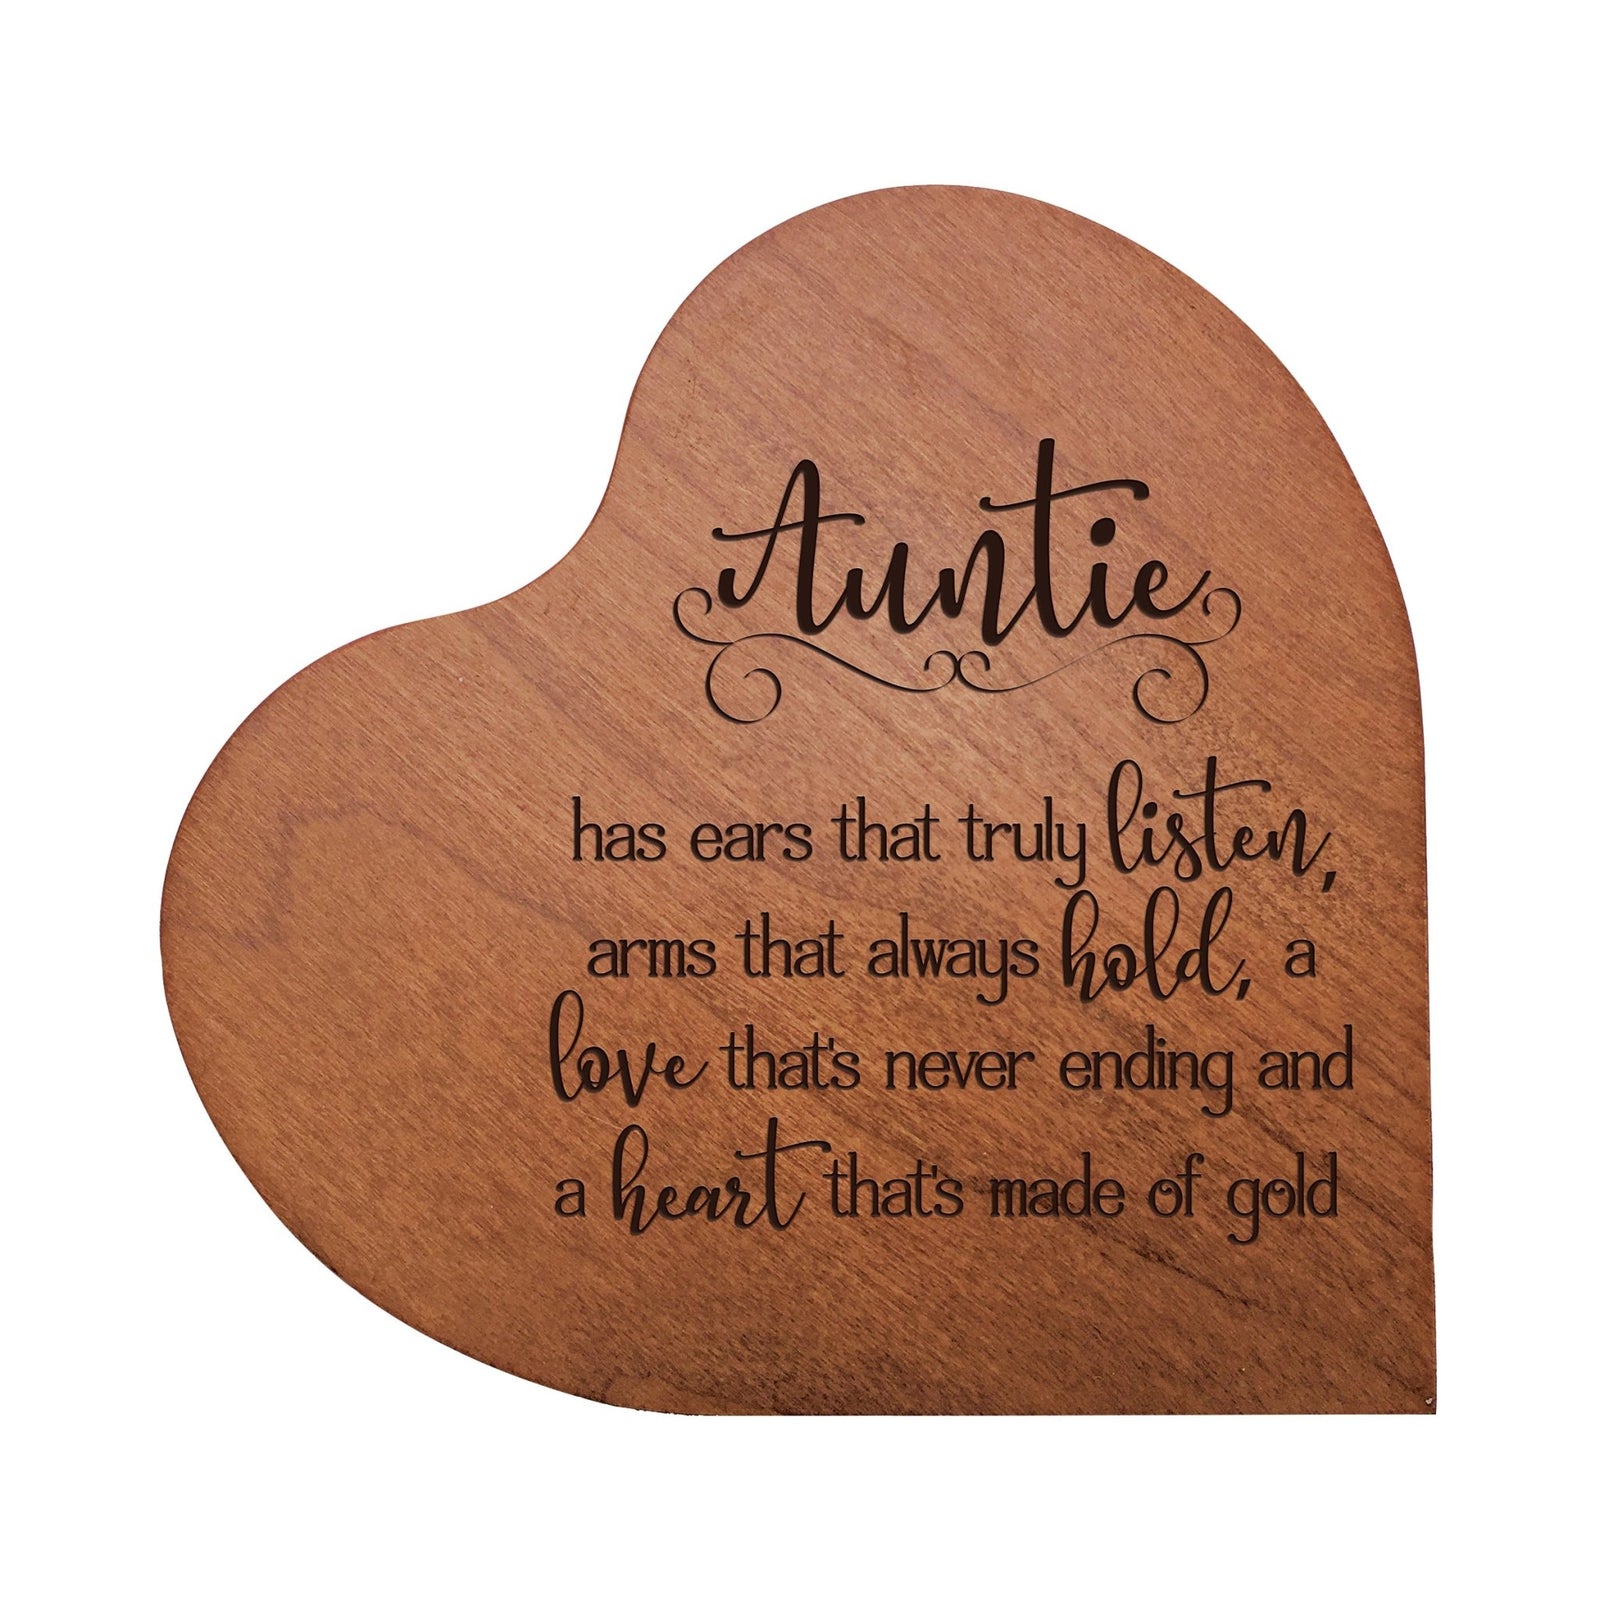 Auntie
has ears that truly listen,
arms that always hold, a
love that's never ending and
a heart that's made of gold